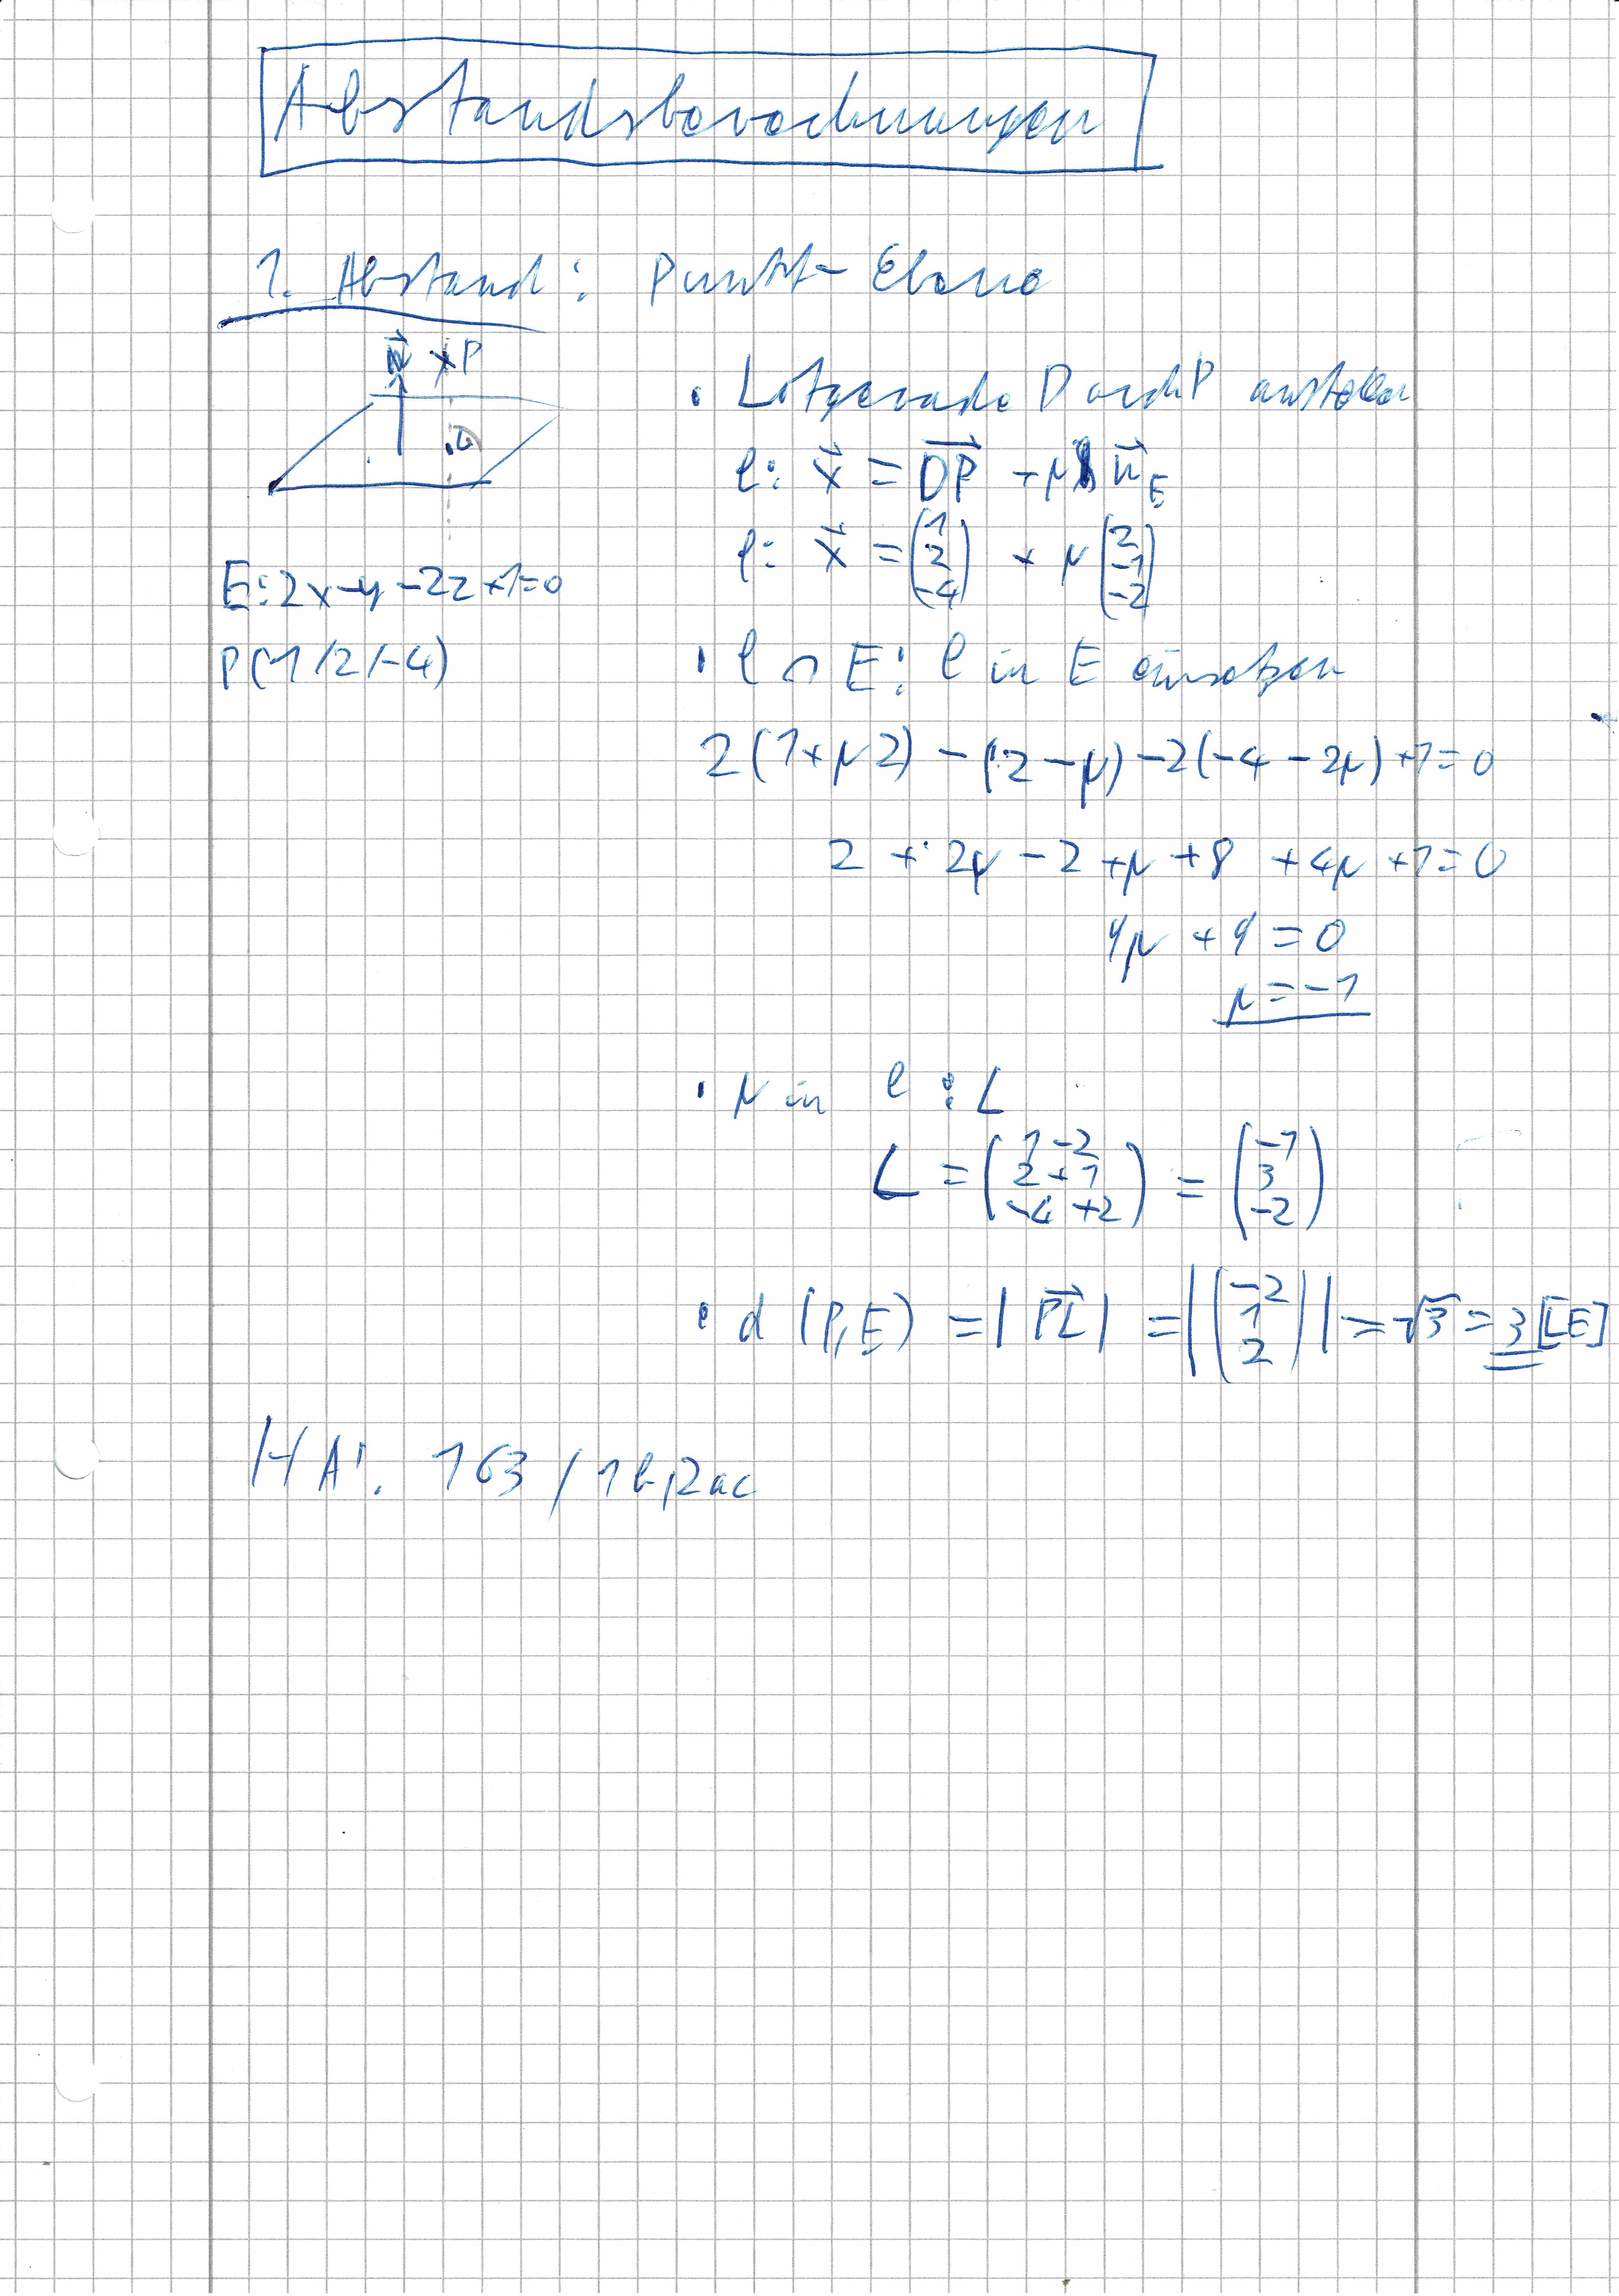 Abstandsberechnungen
1. Abstand: Punkt-Ebene
n⃗ xP
• Lotgerade Durch P aufstellen
l: x⃗ = OP⃗ + μ n⃗_E
l: x⃗ = (1 2 -4) + μ (2 -1 -2)
E: 2x-y-2z+1=0
P(1/2/-4)
• l ∩ E: l in E einsetzen
2(1+μ2) - (2-μ) -2(-4-2μ)+1=0
2 + 2μ - 2 + μ + 8 + 4μ + 1 = 0
9μ + 9 = 0
μ = -1
• μ in l : L
L = (1-2 2+1 -4+2) = (-1 3 -2)
• d (P,E) = |PL⃗| = |(-2 1 2)| = √3 = 3 [LE]
HA: 163 / 1b,2ac